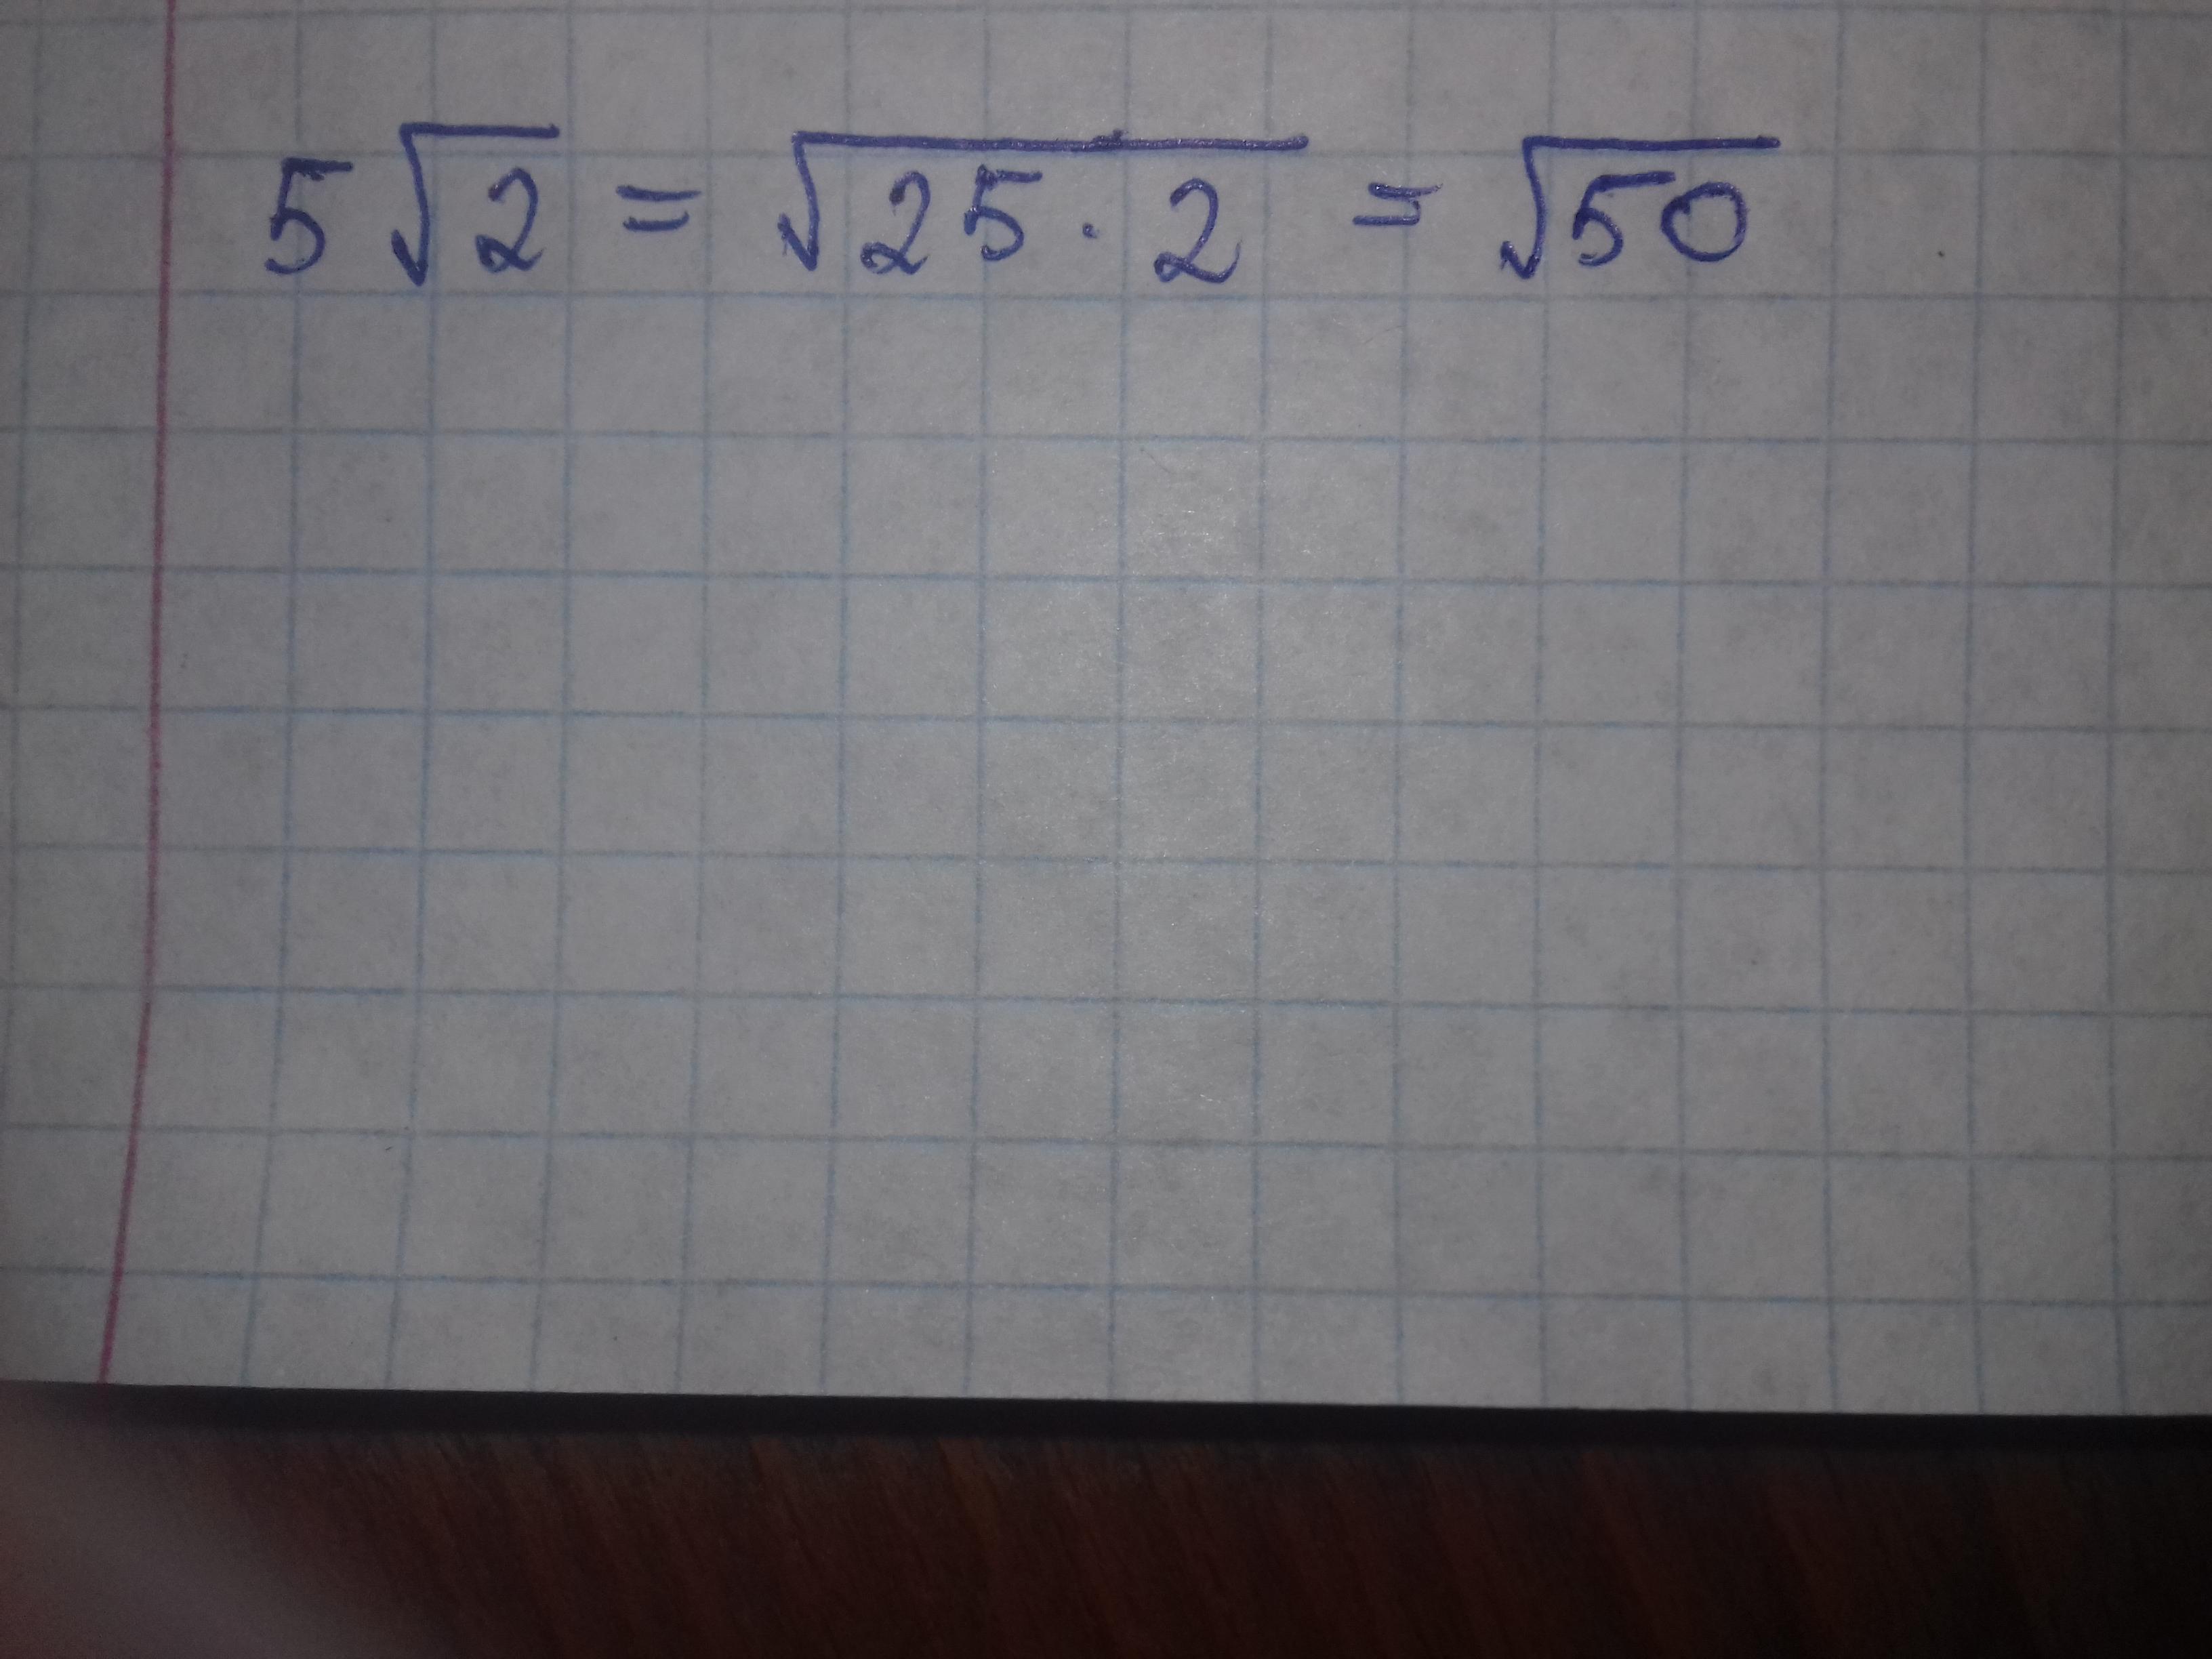 5√2 = √25·2 = √50